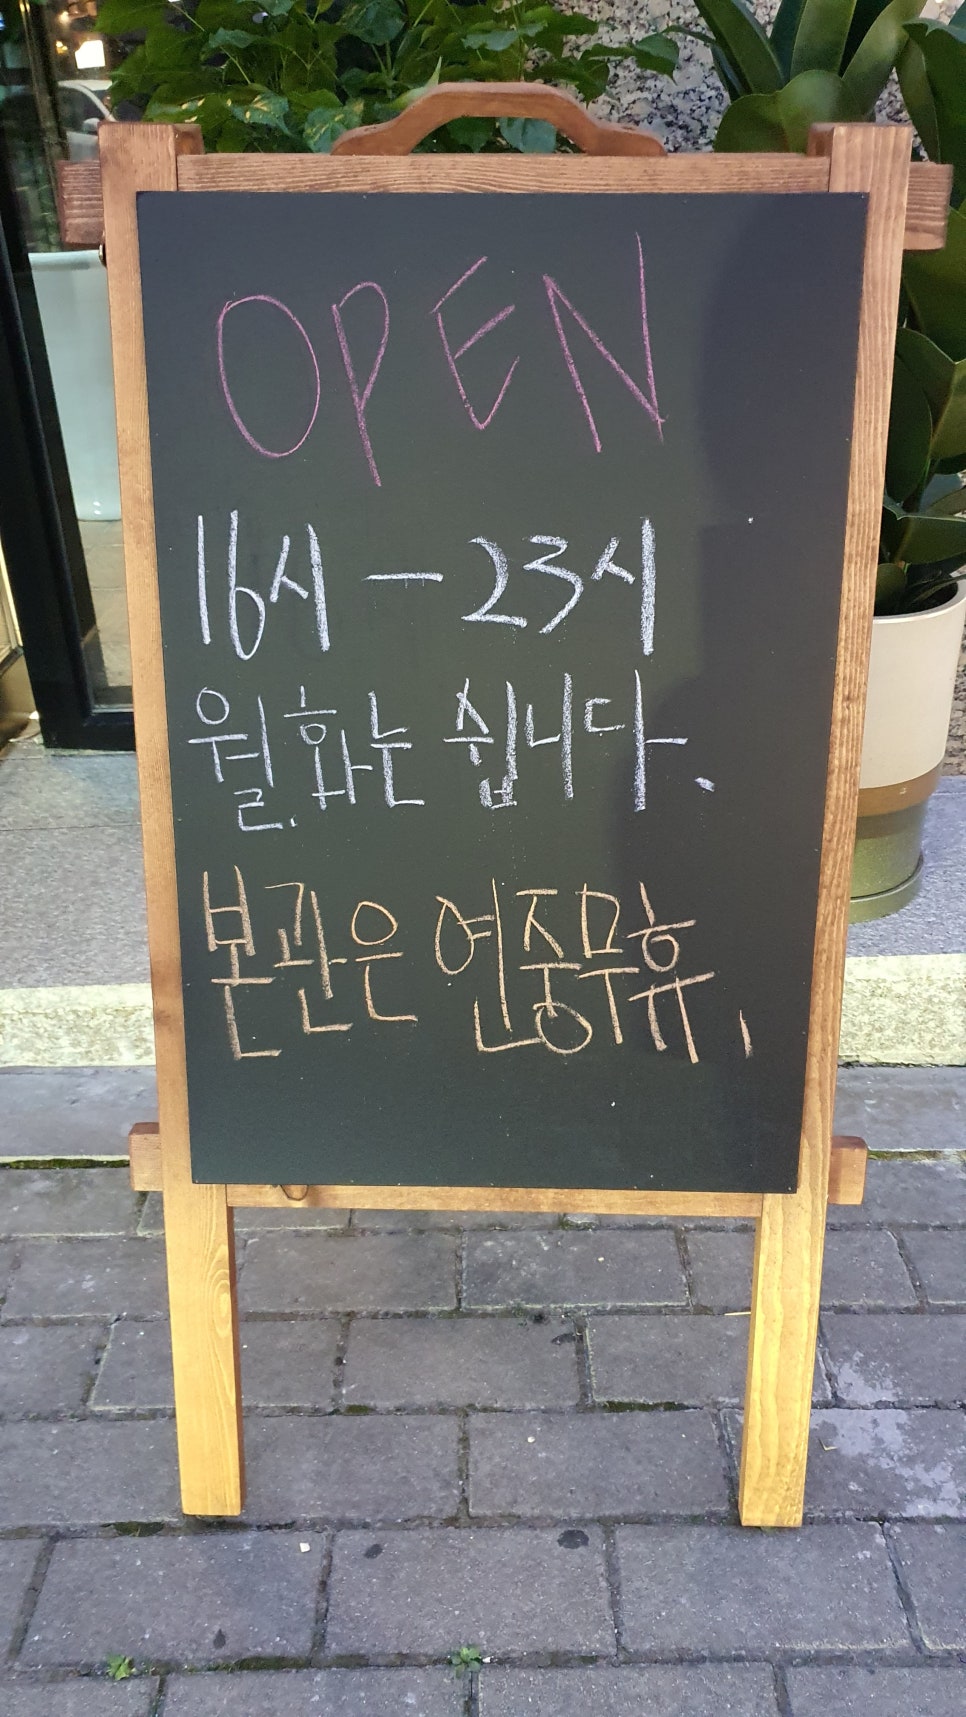 OPEN
16시 - 23시
월.화는 쉽니다.
본관은 연중무휴.